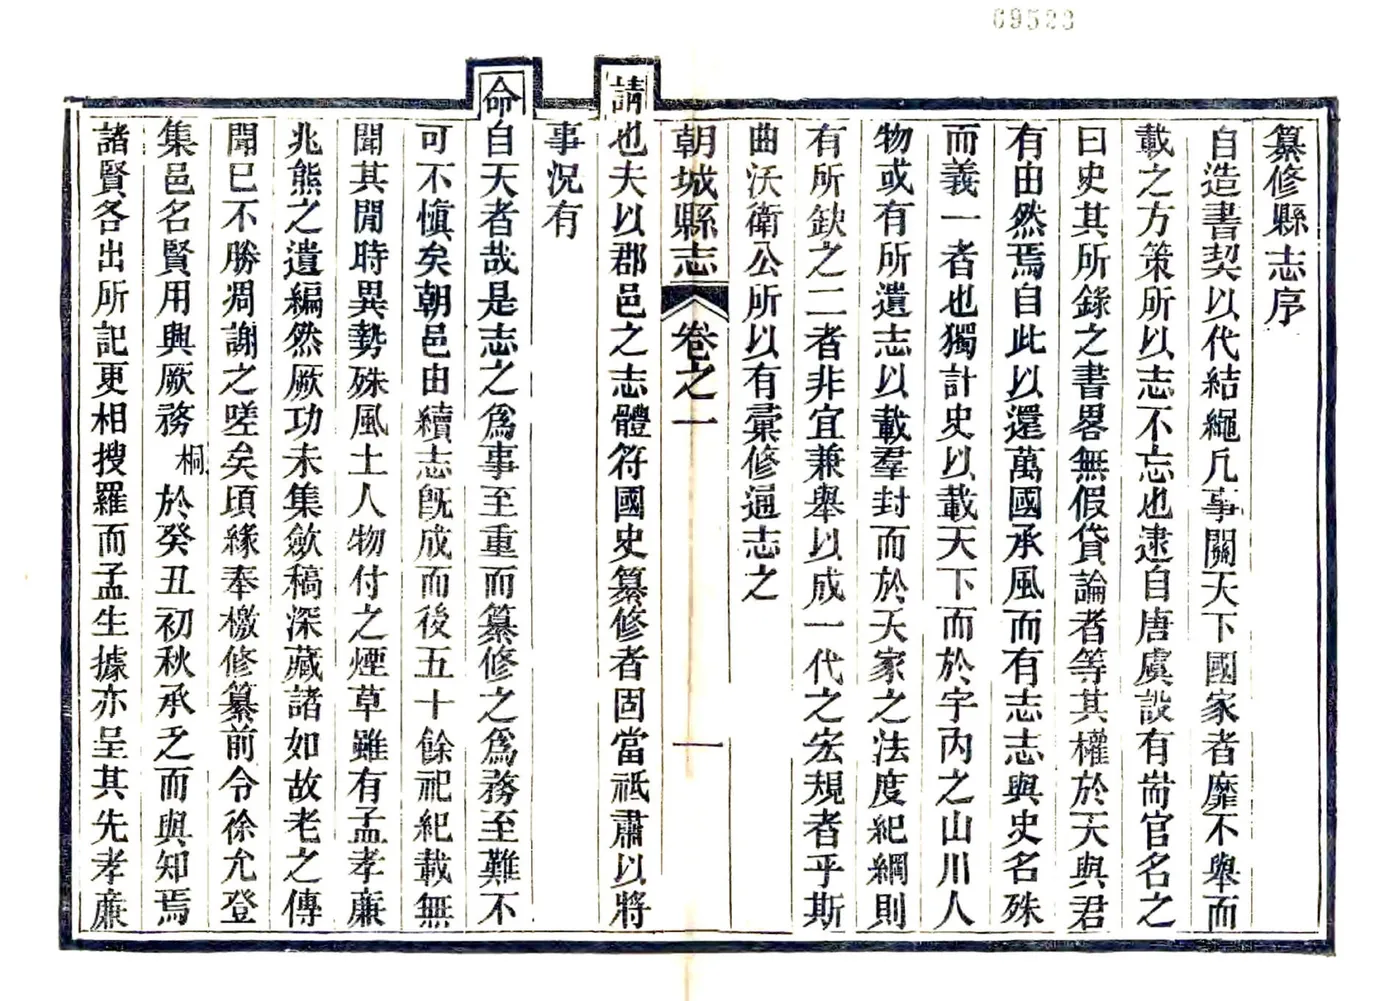 69523
纂修縣志序
自造書契以代結繩凡事關天下國家者靡不舉而
載之方策所以志不忘也逮自唐虞設有耑官名之
曰史其所錄之書畧無假貸論者等其權於天與君
有由然焉自此以還萬國承風而有志志與史名殊
而義一者也獨計史以載天下而於宇內之山川人
物或有所遺志以載羣封而於天家之法度紀綱則
有所欽之二者非宜兼舉以成一代之宏規者乎斯
曲沃衛公所以有彙修通志之
朝城縣志 卷之一 一
請也夫以郡邑之志體符國史纂修者固當祗肅以將
事況有
命自天者哉是志之為事至重而纂修之為務至難不
可不慎矣朝邑由續志旣成而後五十餘祀紀載無
聞其閒時異勢殊風土人物付之煙草雖有孟孝廉
兆熊之遺編然厥功未集斂稿深藏諸如故老之傳
聞已不勝凋謝之嗟矣頃緣奉檄修纂前令徐允登
集邑名賢用興厥務桐於癸丑初秋承乏而與知焉
諸賢各出所記更相搜羅而孟生據亦呈其先孝廉